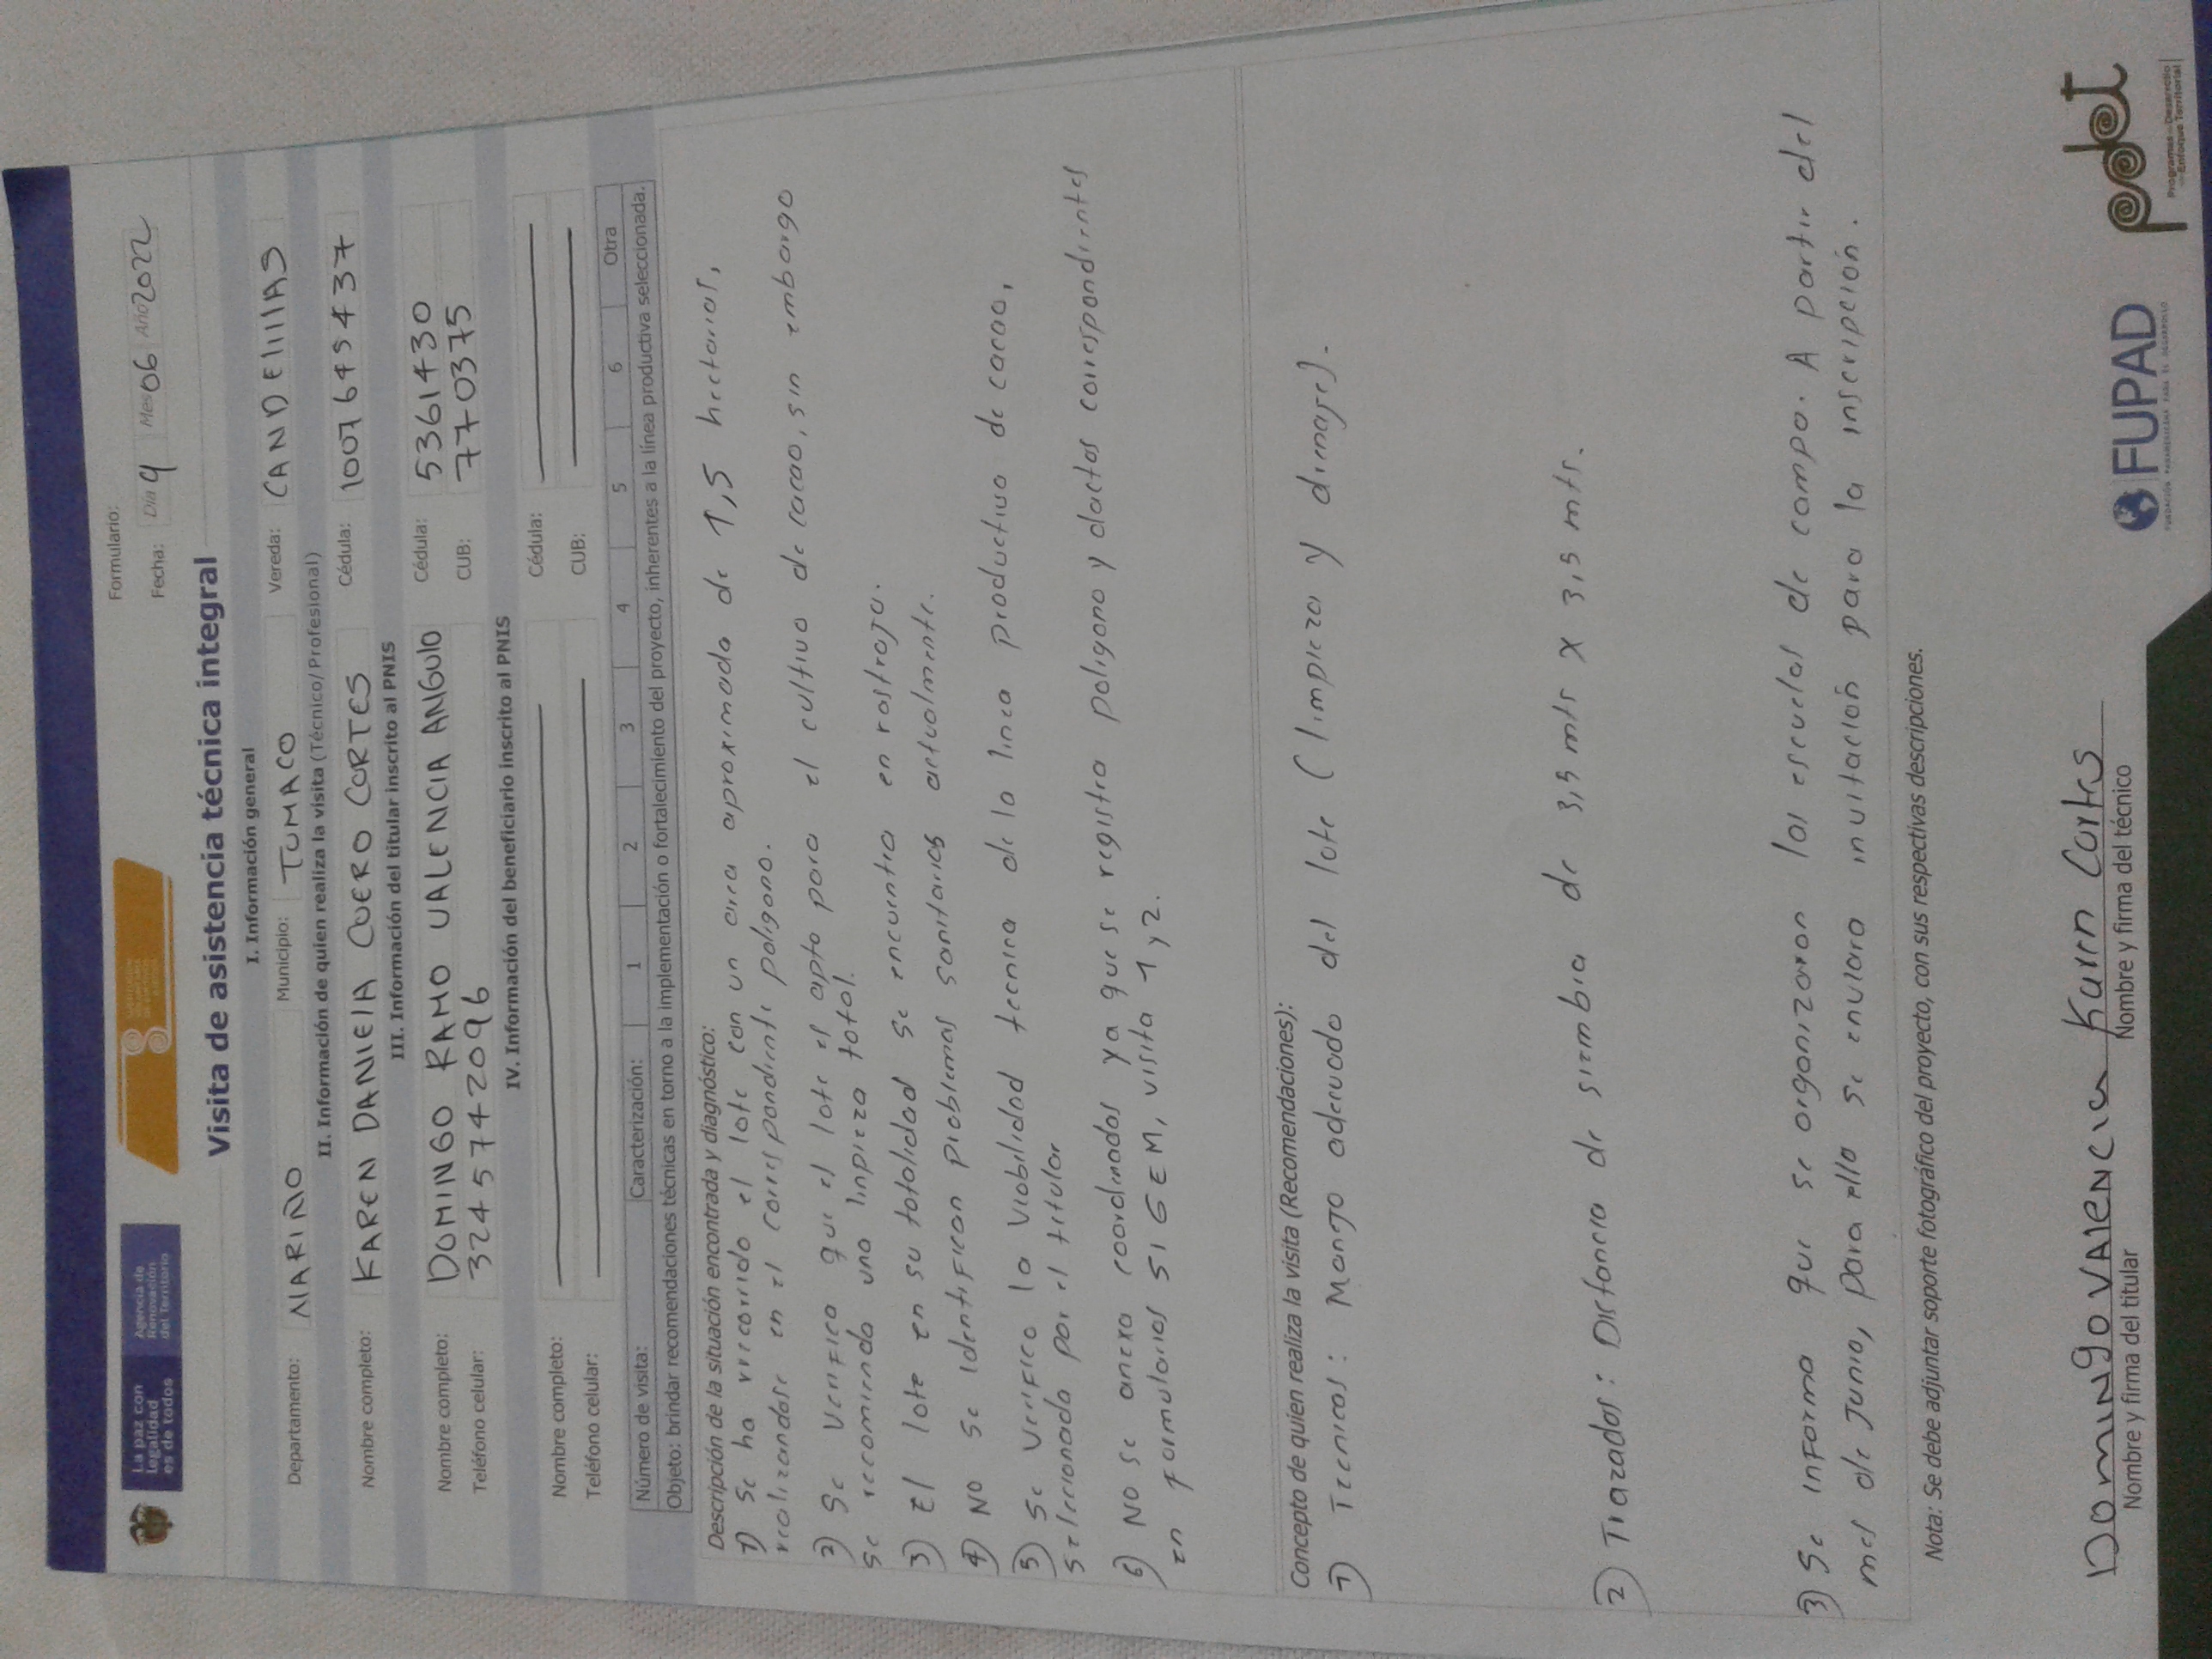 La paz con
legalidad
es de todos
Agencia de
Renovación
del Territorio
Formulario:
Fecha: Día 9 Mes 06 Año 2022
Visita de asistencia técnica integral
I. Información general
Departamento: NARIÑO Municipio: TUMACO Vereda: CANDElIllAS
II. Información de quien realiza la visita (Técnico/ Profesional)
Nombre completo: KAREN DANIElA CUERO CORTES Cédula: 1007645437
III. Información del titular inscrito al PNIS
Nombre completo: DOMINGO RAMO VALENCIA ANGUlO Cédula: 5361430
Teléfono celular: 3245742096 CUB: 770375
IV. Información del beneficiario inscrito al PNIS
Nombre completo: Cédula:
Teléfono celular: CUB:
Número de visita: Caracterización: 1 2 3 4 5 6 Otra
Objeto: brindar recomendaciones técnicas en torno a la implementación o fortalecimiento del proyecto, inherentes a la línea productiva seleccionada.
Descripción de la situación encontrada y diagnóstico:
1) Se ha rrecorrido el lote con un area aproximada de 1,5 hectarias,
realizandose en el correspondiente poligono.
2) Se verifico que el lote es apto para el cultivo de cacao, sin embargo
se recomienda una linpieza total.
3) El lote en su totalidad se encuentra en rastrojo.
4) No se identifican problemas sanitarios actualmente.
5) Se verifico la viabilidad tecnica de la linea productiva de cacao,
seleccionada por el titular
6) No se anexa coordinadas ya que se registra poligono y dactos correspondientes
en formularios SIGEM, visita 1 y 2.
Concepto de quien realiza la visita (Recomendaciones):
1) Tecnicos: Manejo adecuado del lote (limpieza y drenajes).
2) Trazados: Distancia de siembra de 3,5 mts x 3,5 mts.
3) Se informa que se organizaron las escuelas de campo. A partir del
mes de Junio, para ello se enviara invitación para la inscripción.
Nota: Se debe adjuntar soporte fotográfico del proyecto, con sus respectivas descripciones.
DomiNgo VAleNCia Karen Cortes
Nombre y firma del titular Nombre y firma del técnico
FUPAD
FUNDACIÓN PANAMERICANA PARA EL DESARROLLO
pdet
Programas de Desarrollo
con Enfoque Territorial